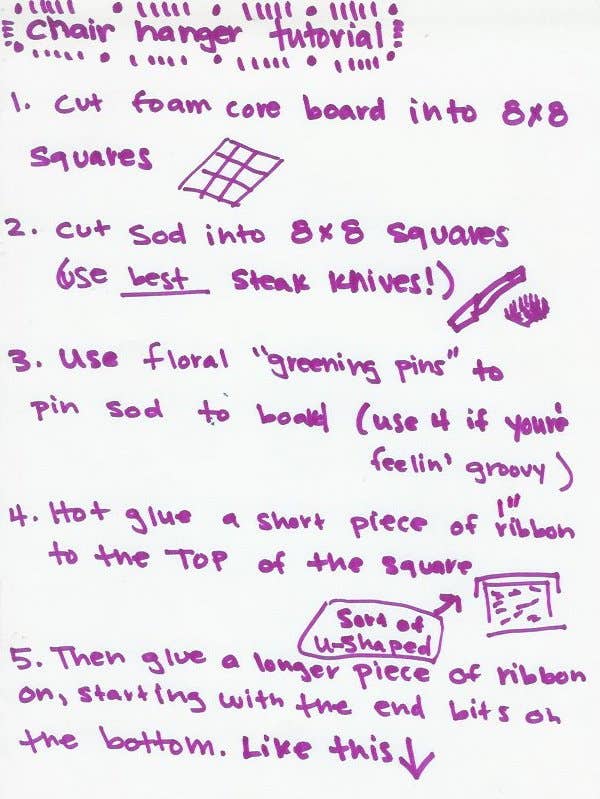 chair hanger tutorial
1. cut foam core board into 8x8
squares
2. cut sod into 8x8 squares
(use best steak knives!)
3. use floral "greening pins" to
pin sod to board (use 4 if you're
feelin' groovy)
1"
4. Hot glue a short piece of ribbon
to the TOP of the square
Sort of
u-shaped
5. Then glue a longer piece of ribbon
on, starting with the end bits on
the bottom. Like this